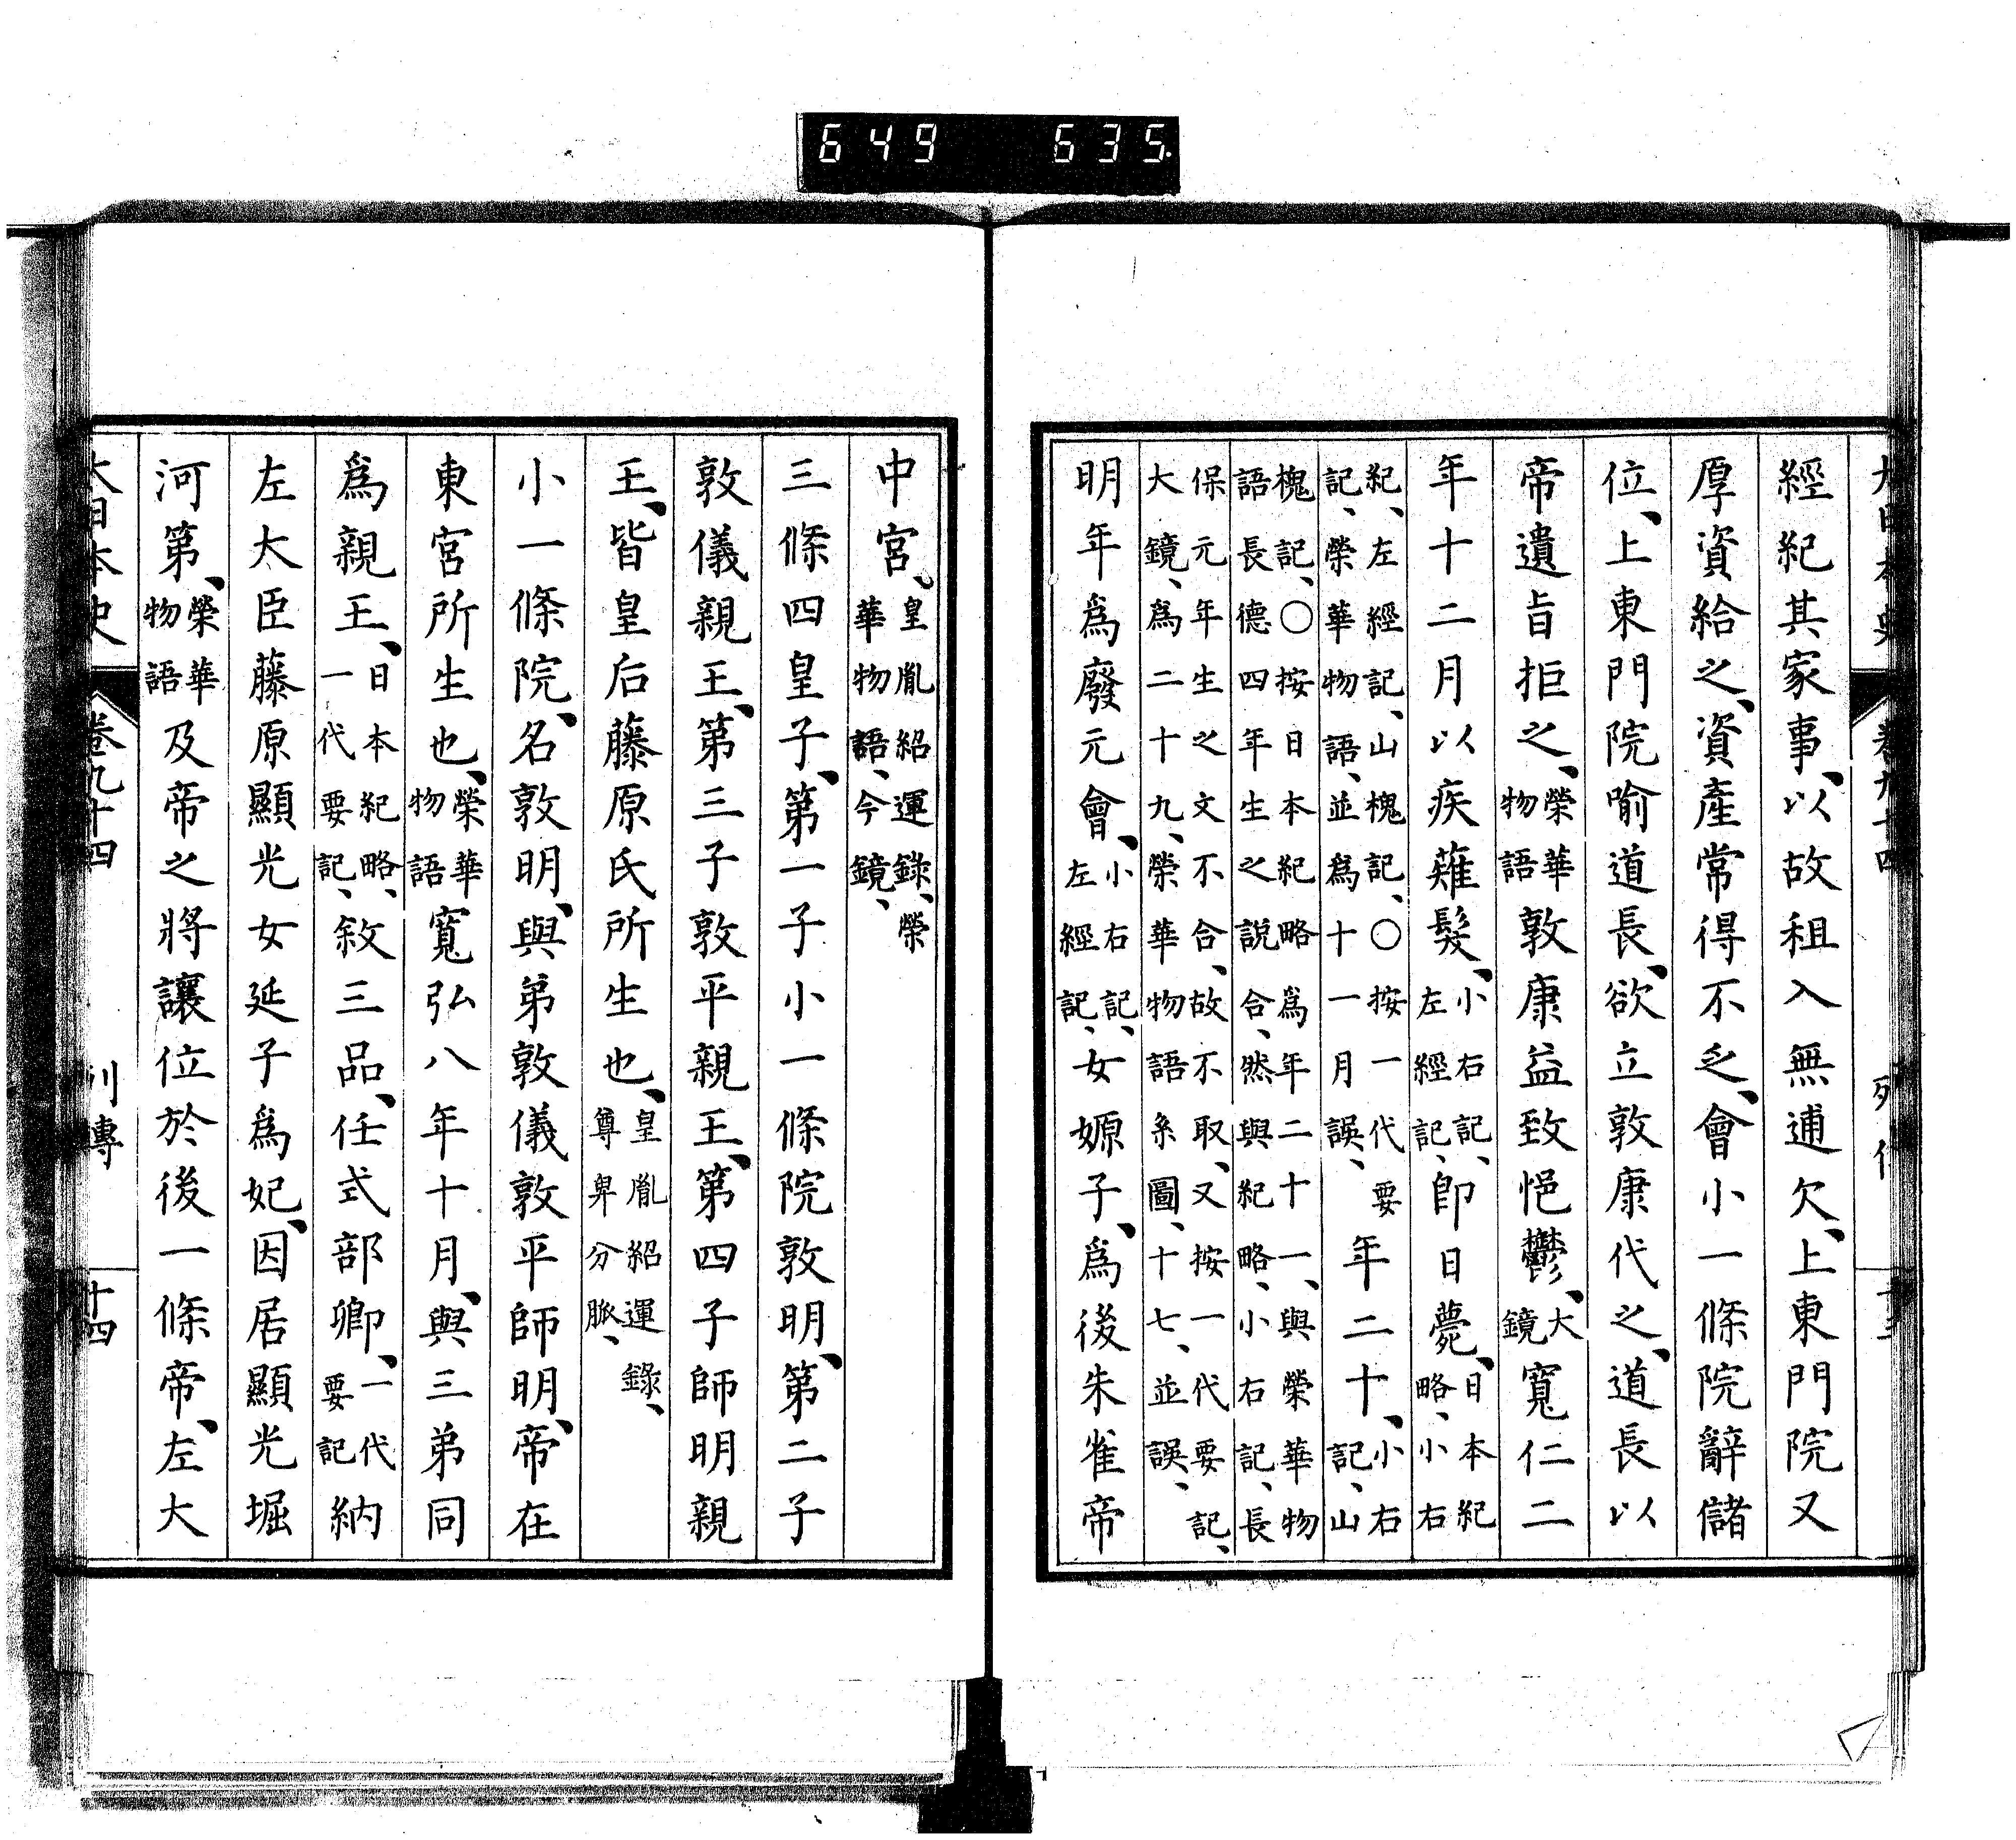 649 635
經紀其家事、以故租入無逋欠、上東門院又
厚資給之、資產常得不乏、會小一條院辭儲
位、上東門院喻道長、欲立敦康代之、道長以
帝遺旨拒之、榮華物語敦康益致悒鬱、大鏡寬仁二
年十二月以疾薙髮、小右記、左經記、卽日薨、日本紀略、小右
記、山槐記、〇按一代要記、榮華物語、並爲十一月誤、年二十、小右記、山
槐記、〇按日本紀略爲年二十一、與榮華物語長德四年生之說合、然與紀略、小右記、長
保元年生之文不合、故不取、又按一代要記、大鏡、爲二十九、榮華物語系圖、十七、並誤、
明年爲廢元會、小右記、左經記、女嫄子、爲後朱雀帝
中宮、皇胤紹運錄、榮華物語、今鏡、
三條四皇子、第一子小一條院敦明、第二子
敦儀親王、第三子敦平親王、第四子師明親
王、皆皇后藤原氏所生也、皇胤紹運錄、尊卑分脈、
小一條院、名敦明、與弟敦儀敦平師明、帝在
東宮所生也、榮華物語寬弘八年十月、與三弟同
爲親王、日本紀略、一代要記、敘三品、任式部卿、一代要記納
左大臣藤原顯光女延子爲妃、因居顯光堀
河第、榮華物語及帝之將讓位於後一條帝、左大
大日本史 卷九十四 列傳 十四